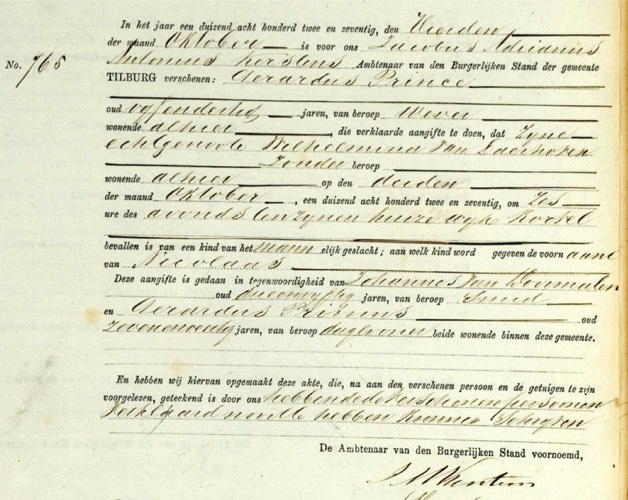 In het jaar een duizend acht honderd twee en zeventig, den Vierden
der maand Oktober is voor ons Jacobus Adrianus
No. 765
Antonius Kerstens Ambtenaar van den Burgerlijken Stand der gemeente
TILBURG verschenen: Gerardus Prince
oud vyfendertig jaren, van beroep Wever
wonende alhier, die verklaarde aangifte te doen, dat Zyne
echtgenoote Wilhelmina Van
Zonder beroep
wonende alhier op den derden
der maand Oktober, een duizend acht honderd twee en zeventig, om Zes
ure des avonds tenzynen huize wyk Korvel
bevallen is van een kind van het mann elijk geslacht; aan welk kind word gegeven de voorn aam
van Nicolaas
Deze aangifte is gedaan in tegenwoordigheid van Johannes Van
oud jaren, van beroep Smid
en Gerardus oud
jaren, van beroep dagloner beide wonende binnen deze gemeente.
En hebben wij hiervan opgemaakt deze akte, die, na aan den verschenen persoon en de getuigen te zijn
voorgelezen, geteekend is door ons hebbende de verschenen persoonen
verklaard niet te hebben kunnen
De Ambtenaar van den Burgerlijken Stand voornoemd,